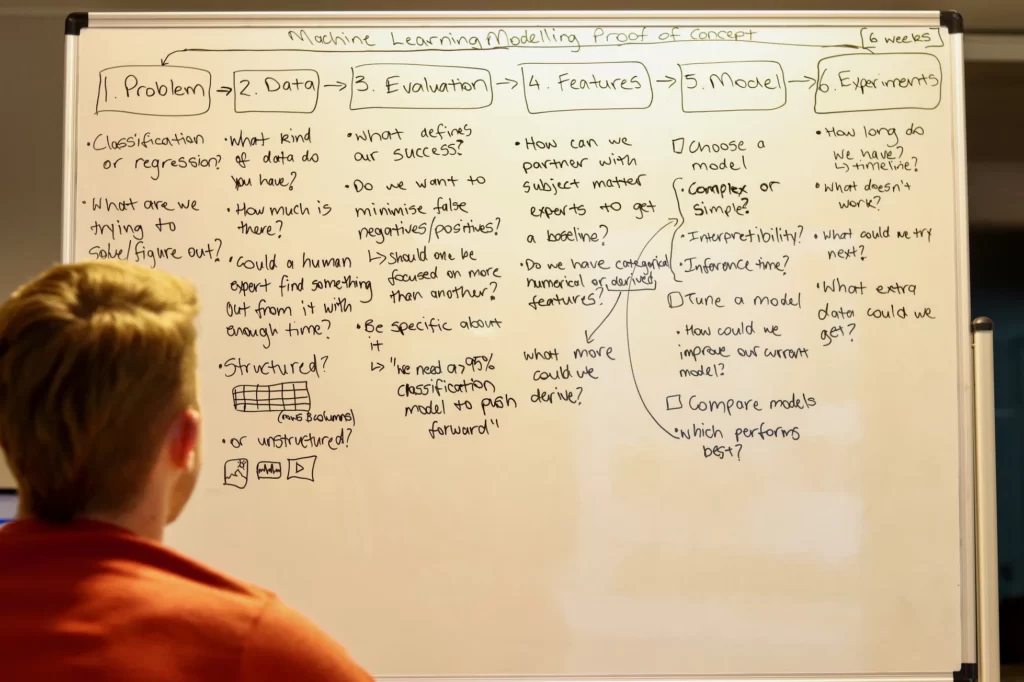 Machine Learning Modelling Proof of Concept
[6 weeks]
1. Problem
• Classification
or regression?
• What are we
trying to
solve/figure out?
2. Data
• What kind
of data do
you have?
• How much is
there?
• Could a human
expert find something
out from it with
enough time?
• Structured?
(rows & columns)
• or unstructured?
3. Evaluation
• What defines
our success?
• Do we want to
minimise false
negatives/positives?
↳ Should one be
focused on more
than another?
• Be specific about
it
↳ "We need a >95%
classification
model to push
forward"
4. Features
• How can we
partner with
subject matter
experts to get
a baseline?
• Do we have categorical
numerical or derived
features?
what more
could we
derive?
5. Model
Choose a
model
• Complex or
Simple?
• Interpretibility?
• Inference time?
Tune a model
• How could we
improve our current
model?
Compare models
• Which performs
best?
6. Experiments
• How long do
we have?
↳ timeline?
• What doesn't
work?
• What could we try
next?
• What extra
data could we
get?